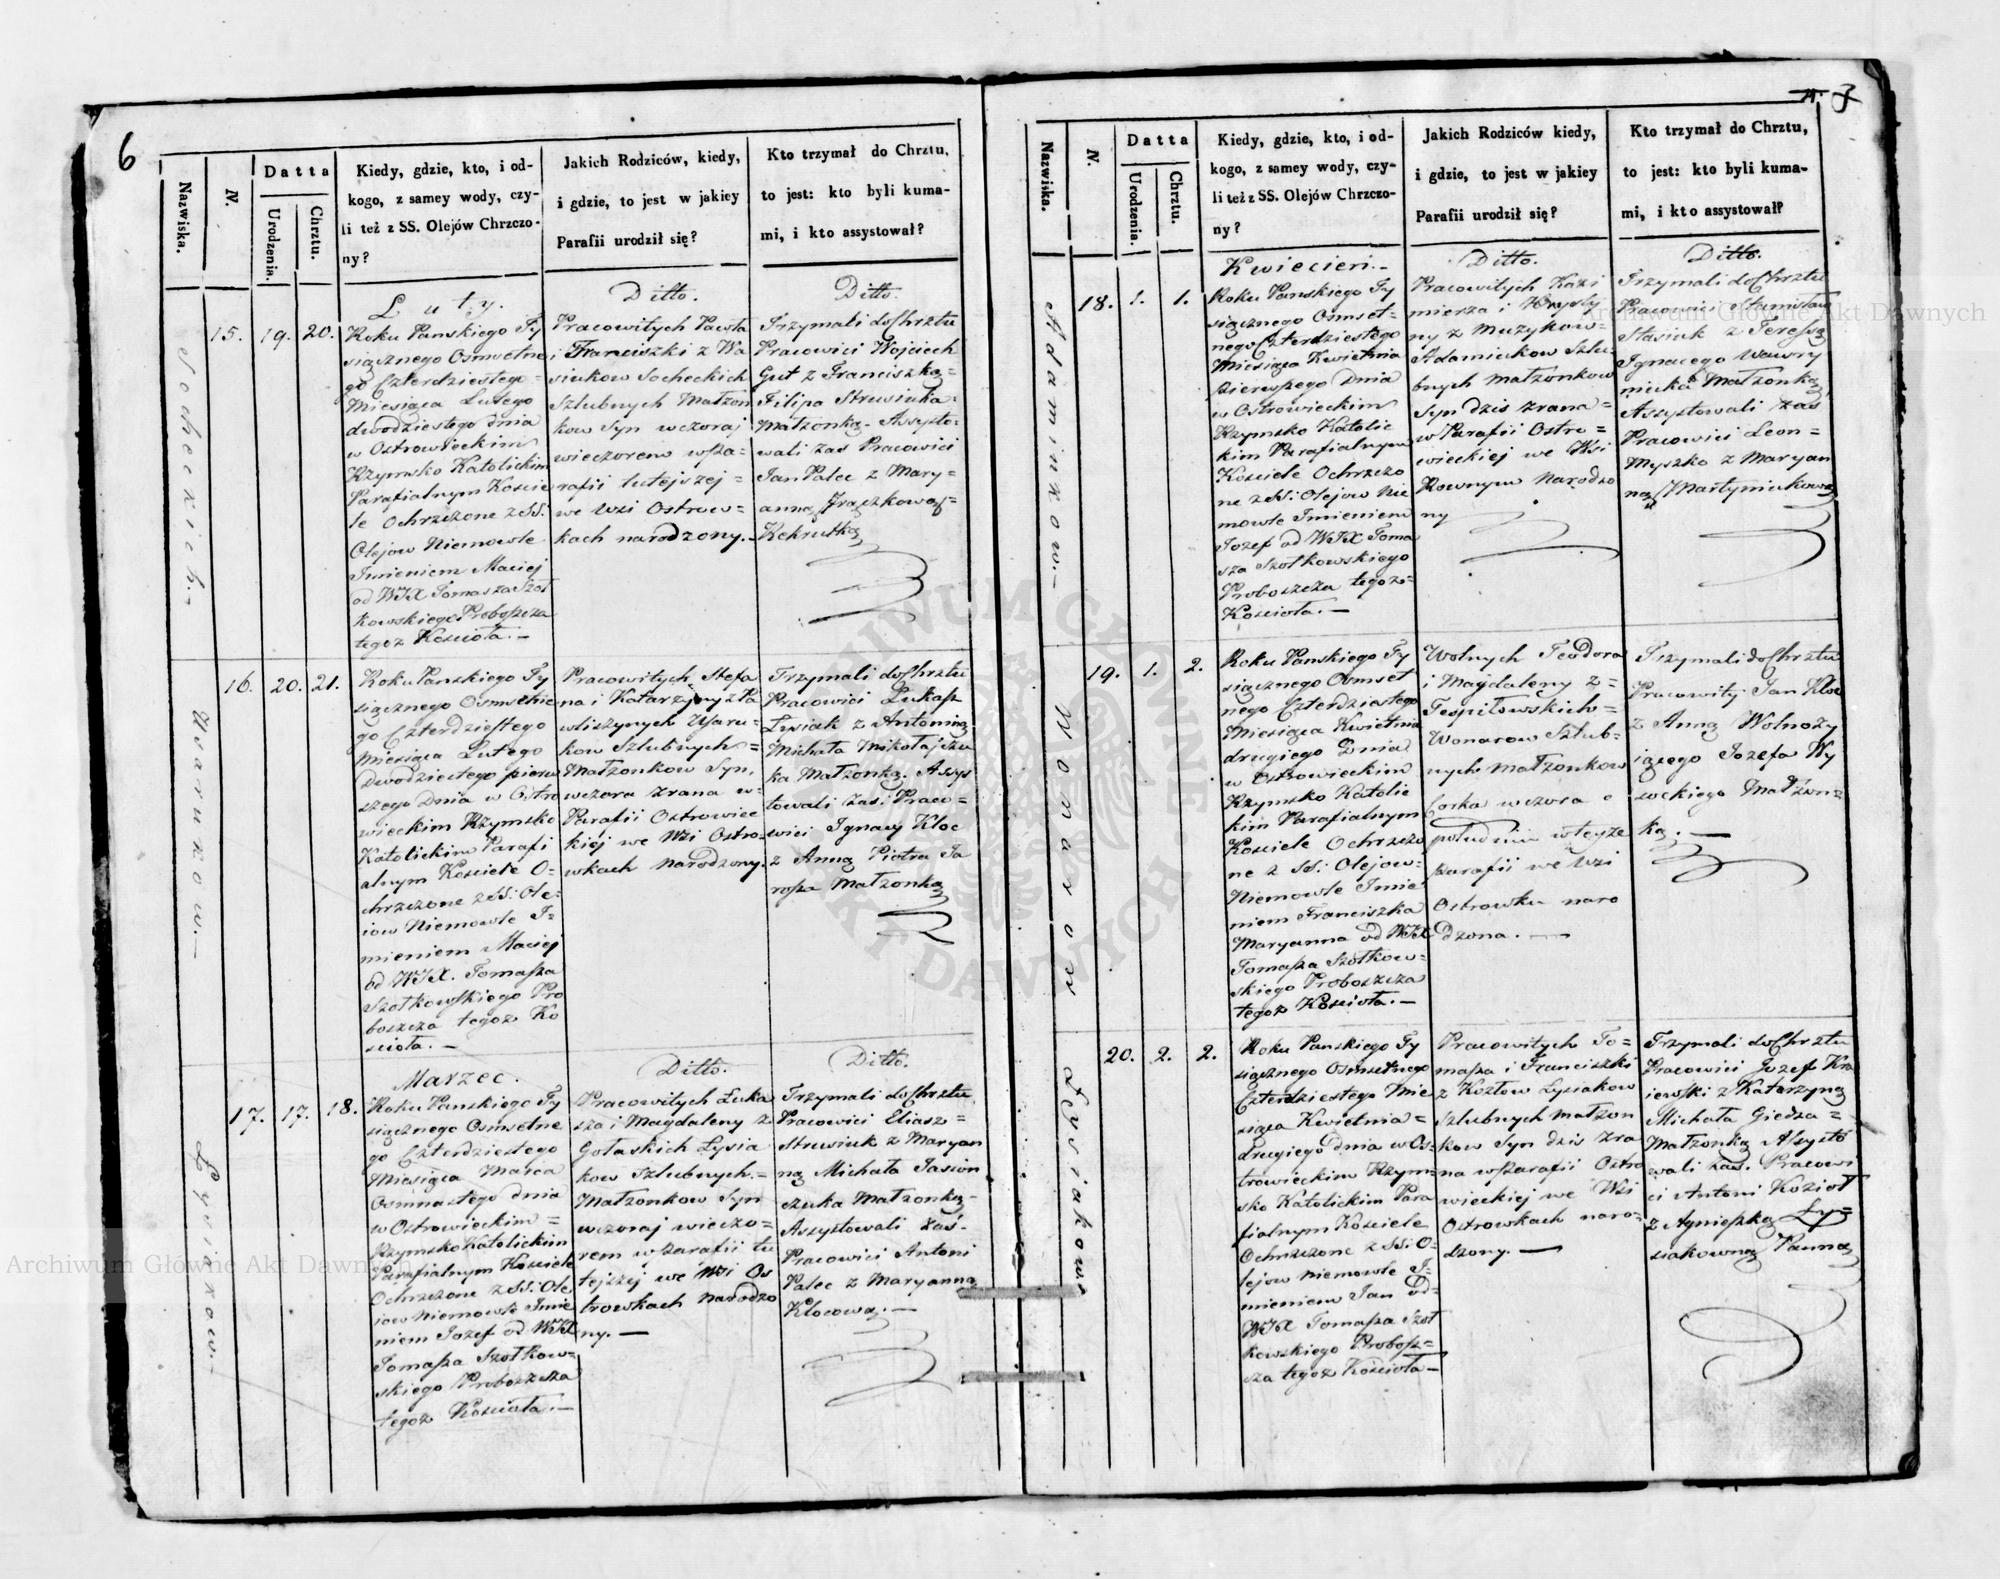 6
Nazwiska.
N.
Datta
Urodzenia.
Chrztu.
Kiedy, gdzie, kto, i od-
kogo, z samey wody, czy-
li też z SS. Olejów Chrzczo-
ny?
Jakich Rodziców, kiedy,
i gdzie, to jest w jakiey
Parafii urodził się?
Kto trzymał do Chrztu,
to jest: kto byli kuma-
mi, i kto assystował?
Socheckich.
15. 19. 20.
Luty.
Roku Panskiego Ty
siącznego Osmsetne
go Czterdziestego
Miesiąca Lutego
dwodziestego dnia
w Ostrowieckim
Rzymsko Katolickim
Parafialnym Koscie
le Ochrzczone z SS.
Olejow Niemowle
Imieniem Maciej
od WJX Tomasza Szot
kowskiego Proboszcza
tegoz Kosciola.
Ditto.
Pracowitych Pawla
i Franciszki z Wa
siukow Socheckich
Szlubnych Malzon
kow Syn wczoraj
wieczorem w Pa-
rafii tutejszej
we Wsi Ostrow-
kach narodzony.
Ditto.
Trzymali do Chrztu
Pracowici Woyciech
Gut z Franciszką
Filipa Struiuka
Malzonką. Assysto-
wali zas Pracowici
Jan Palec z Mary-
anną
Uarukow.
16. 20. 21.
Roku Panskiego Ty
siącznego Osmsetne
go Czterdziestego
Miesiąca Lutego
Dwodziestego pierw
szego Dnia w Ostro
wieckim Rzymsko
Katolickim Parafi
alnym Kosciele O-
chrzczone z SS. Ole-
iow Niemowle I-
mieniem Maciej
od WJX. Tomasza
Szotkowskiego Pro
boszcza tegoz Ko
sciola.
Pracowitych Stefa
na i Katarzyny z Pa
wliszynych Uaru-
kow Szlubnych
Malzonkow Syn,
wczora zrana w
Parafii Ostrowiec
kiej we Wsi Ostro-
wkach narodzony.
Trzymali do Chrztu
Pracowici Lukasz
Lysiak z Antoniną
Michala Mikolajczu
ka Malzonką. Assys
towali zas: Praco-
wici Ignacy Kloc
z Anną Piotra Ja
rosza Malzonką
Lysiakow.
17. 17. 18.
Marzec.
Roku Panskiego Ty
siącznego Osmsetne
go Czterdziestego
Miesiąca Marca
Osmnastego dnia
w Ostrowieckim
Rzymsko Katolickim
Parafialnym Kosciele
Ochrzczone z SS. Ole
iow Niemowle Imie
niem Jozef od WJX
Tomasza Szotkow-
skiego Proboszcza
tegoz Kosciola.
Ditto.
Pracowitych Luka
sza i Magdaleny z
Golaskich Lysia
kow Szlubnych
Malzonkow Syn
wczoraj wieczo-
rem w Parafii tu
tejszej we Wsi Os
trowkach narodzo
ny.
Ditto.
Trzymali do Chrztu
Pracowici Eliasz
Struiuk z Maryan
ną Michala Jasion
czuka Malzonką
Assystowali zaś
Pracowici Antoni
Palec z Maryanną
Klocową.
Nazwiska.
N.
Datta
Urodzenia.
Chrztu.
Kiedy, gdzie, kto, i od-
kogo, z samey wody, czy-
li też z SS. Olejów Chrzczo-
ny?
Jakich Rodziców kiedy,
i gdzie, to jest w jakiey
Parafii urodził się?
Kto trzymał do Chrztu,
to jest: kto byli kuma-
mi, i kto assystował?
Adamiukow.
18. 1. 1.
Kwiecień.
Roku Panskiego Ty
siącznego Osmset-
nego Czterdziestego
Miesiąca Kwietnia
pierwszego Dnia
w Ostrowieckim
Rzymsko Katolic
kim Parafialnym
Kosciele Ochrzczo
ne z SS. Olejow Nie
mowle Imieniem
Jozef od WJX Toma
sza Szotkowskiego
Proboszcza tegoz
Kosciola.
Ditto.
Pracowitych Kazi
mierza i Krysty
ny z Muzykow
Adamiukow Szlu-
bnych Malzonkow
Syn dzis zrana
w Parafii Ostro-
wieckiej we Wsi
Rownym Narodzo
ny
Ditto.
Trzymali do Chrztu
Pracowici Stanislaw
Stasiuk z Teressą
Ignacego Wawry
niuka Malzonką
Assystowali zas
Pracowici Leon
Myszko z Maryan
ną Martyniukową
Wonarow
19. 1. 2.
Roku Panskiego Ty
siącznego Osmset
nego Czterdziestego
Miesiąca Kwietnia
drugiego Dnia
w Ostrowieckim
Rzymsko Katolic
kim Parafialnym
Kosciele Ochrzczo
ne z SS. Olejow
Niemowle Imie
niem Franciszka
Maryanna od WJX
Tomasza Szotkow-
skiego Proboszcza
tegoz Kosciola.
Wolnych Teodora
i Magdaleny z
Tespilowskich
Wonarow Szlub-
nych Malzonkow
Corka wczora o
poludniu w teyze
parafii we Wsi
Ostrowku naro
dzona.
Trzymali do Chrztu
Pracowity Jan Kloc
z Anną Wolnozy
iącego Jozefa Wy
sockiego Malzon
ką.
Lysiakow
20. 2. 2.
Roku Panskiego Ty
siącznego Osmsetnego
Czterdziestego Mie
siąca Kwietnia
drugiego dnia w Os-
trowieckim Rzym-
sko Katolickim Para
fialnym Kosciele
Ochrzczone z SS. O-
lejow Niemowle I-
mieniem Jan od
WJX Tomasza Szot
kowskiego Probosz-
cza tegoz Kosciola
Pracowitych To-
masza i Franciszki
z Kozlow Lysiakow
Szlubnych Malzon
kow Syn dzis zra
na w Parafii Ostro
wieckiej we Wsi
Ostrowkach naro-
dzony.
Trzymali do Chrztu
Pracowici Jozef Kra
iewski z Katarzyną
Michala Giedza
Malzonką Assysto
wali zas. Pracowi
ci Antoni Koziol
z Agnieszką Ly-
siakowną Panną
Archiwum Główne Akt Dawnych
Archiwum Główne Akt Dawnych
ARCHIWUM GŁÓWNE
AKT DAWNYCH